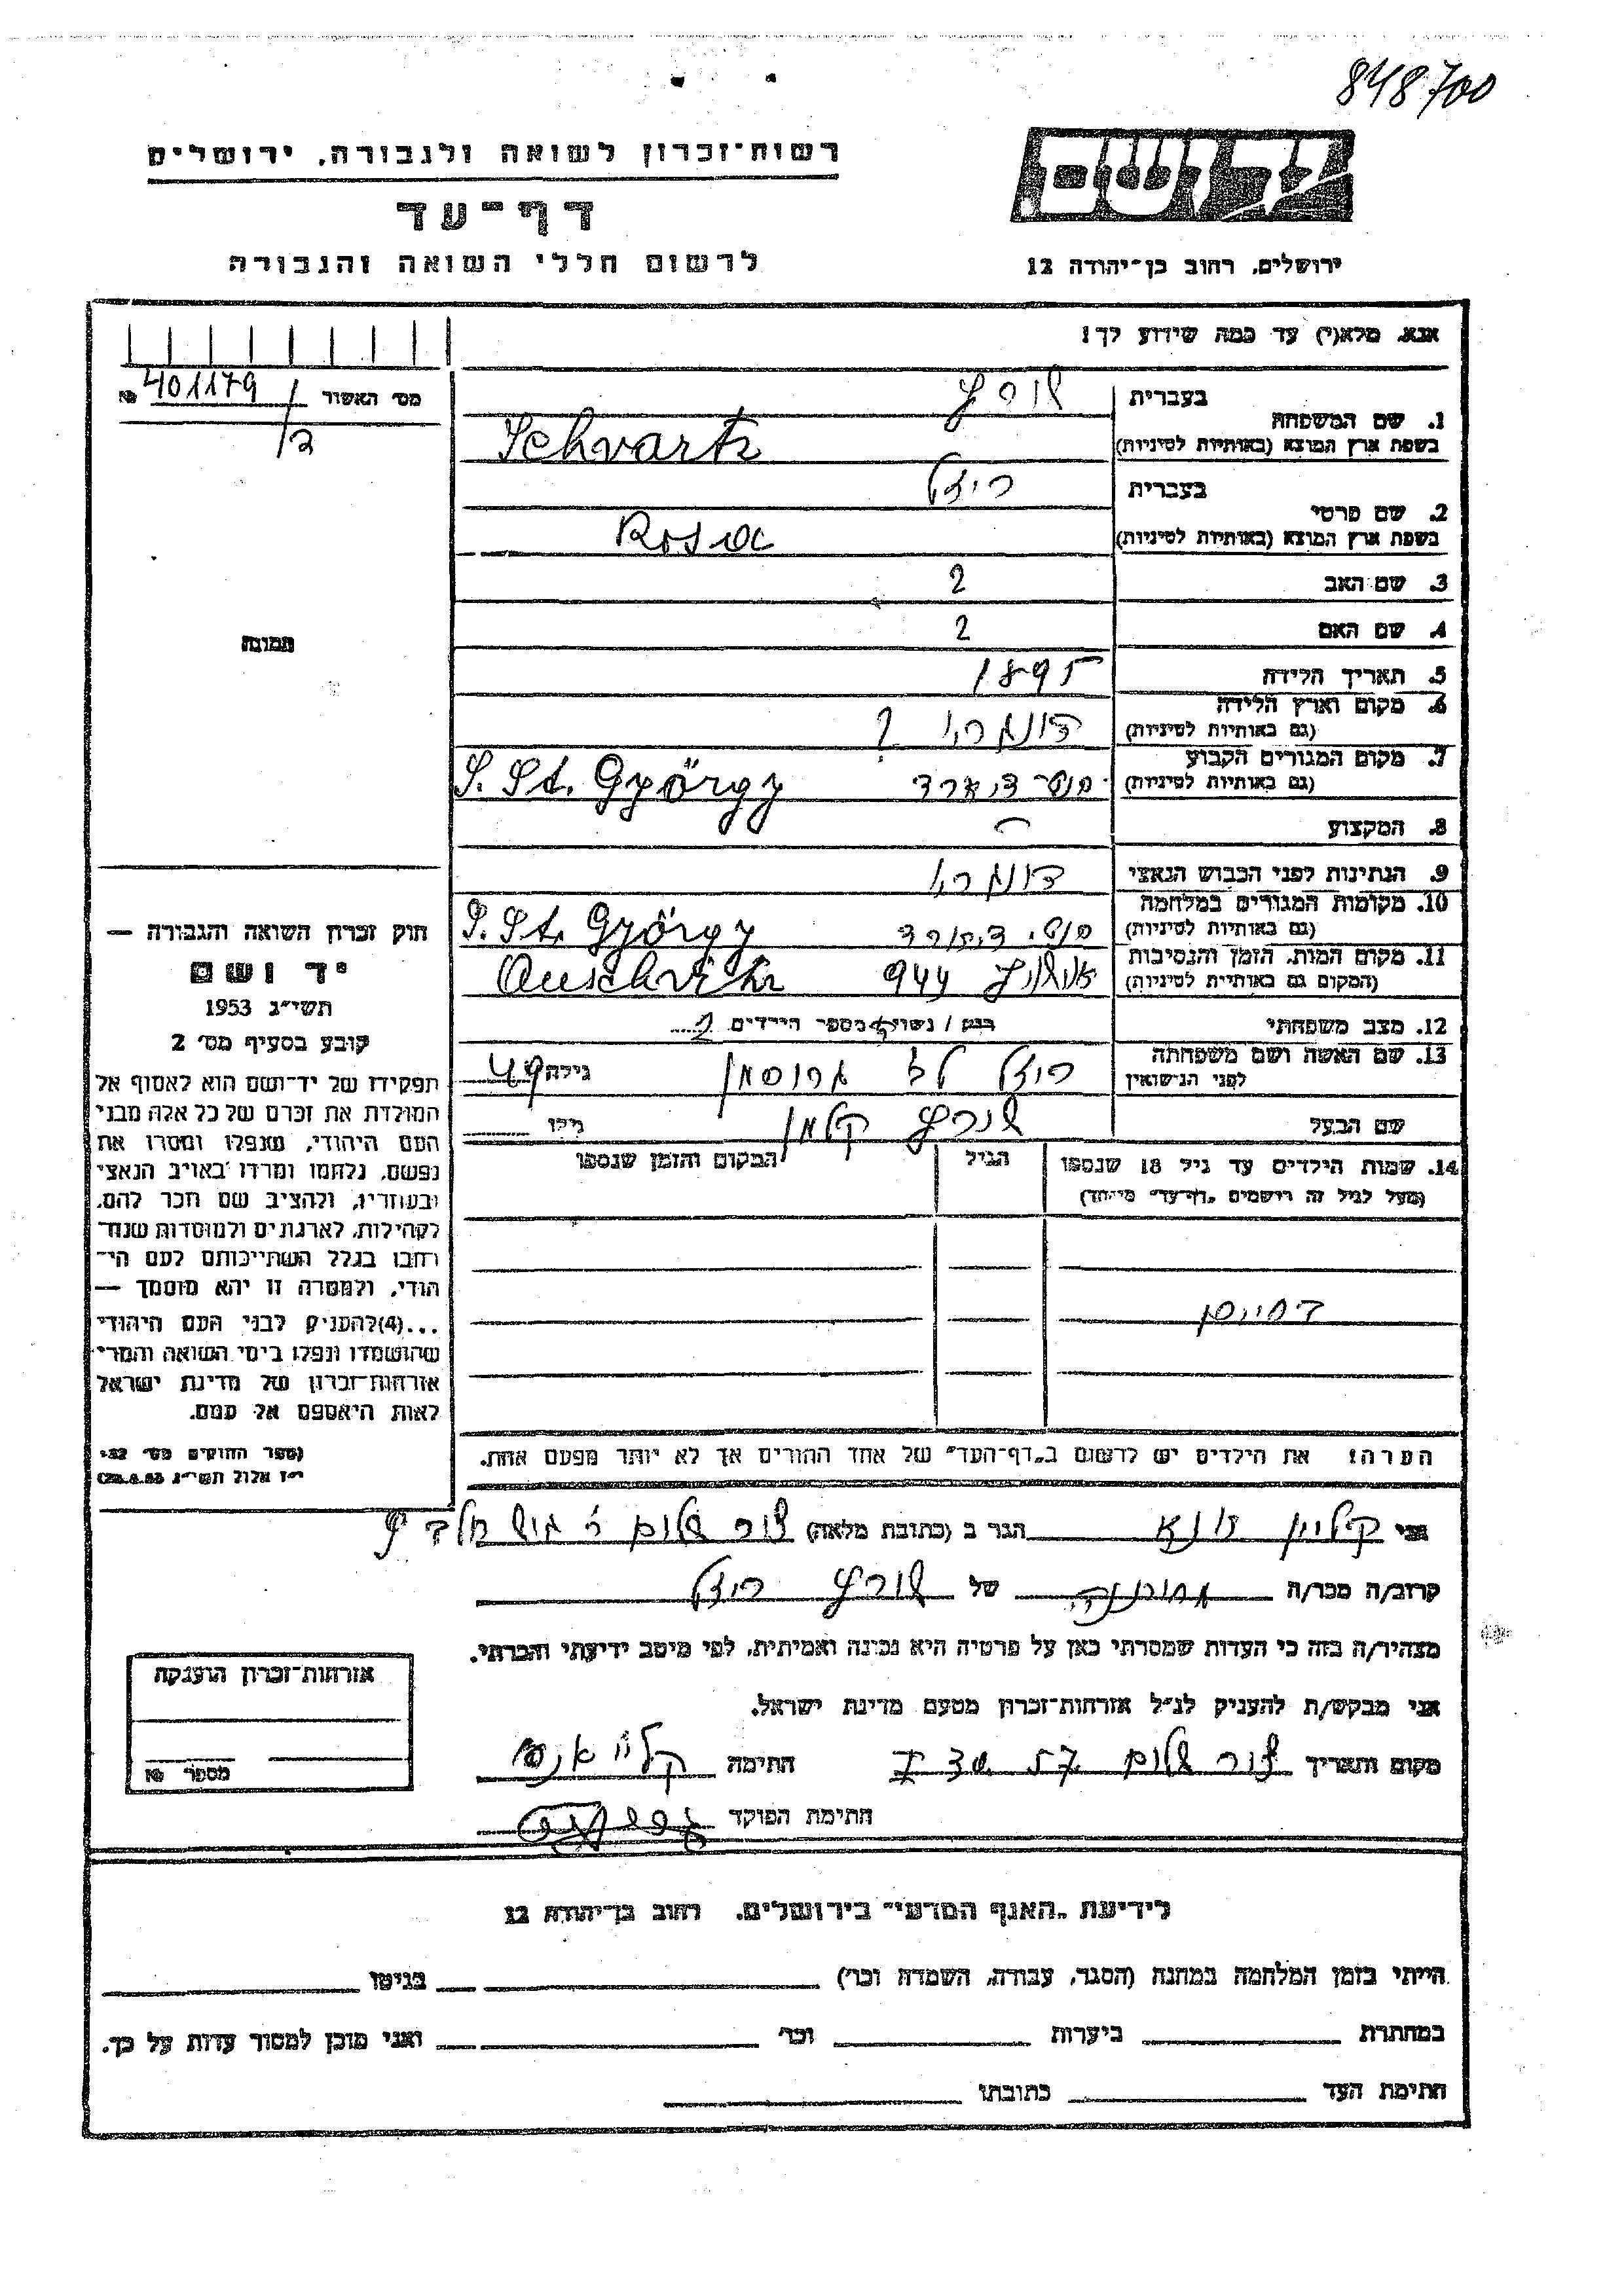 848700
רשות־זכרון לשואה ולגבורה, ירושלים
דף־עד
לרשום חללי השואה והגבורה
ירושלים, רחוב בן־יהודה 12
אנא, מלא(י) עד כמה שידוע לך!
מס׳ האשור 401179 №
בעברית
1. שם המשפחה
בשפת ארץ המוצא (באותיות לטיניות) Schvartz
בעברית רוזל
2. שם פרטי
בשפת ארץ המוצא (באותיות לטיניות) Rosa
3. שם האב ?
4. שם האם ?
תמונה
5. תאריך הלידה 1895
6. מקום וארץ הלידה
(גם באותיות לטיניות) ?
7. מקום המגורים הקבוע
(גם באותיות לטיניות) S. St. György
8. המקצוע
9. הנתינות לפני הכבוש הנאצי
10. מקומות המגורים במלחמה
(גם באותיות לטיניות) S. St. György
11. מקום המות, הזמן והנסיבות
(המקום גם באותיות לטיניות) 944 Auschvitz
12. מצב משפחתי רווק / נשוי מספר הילדים 2
13. שם האשה ושם משפחתה
לפני הנישואין רוזל לבית גרוסמן גילה 49
שם הבעל שורץ קלמן גילו
14. שמות הילדים עד גיל 18 שנספו הגיל המקום והזמן שנספו
(מעל לגיל זה רושמים „דף־עד״ מיוחד)
הערה: את הילדים יש לרשום ב„דף־העד״ של אחד ההורים אך לא יותר מפעם אחת.
חוק זכרון השואה והגבורה —
יד ושם
תשי״ג 1953
קובע בסעיף מס׳ 2
תפקידו של יד־ושם הוא לאסוף אל
המולדת את זכרם של כל אלה מבני
העם היהודי, שנפלו ומסרו את
נפשם, נלחמו ומרדו באויב הנאצי
ובעוזריו, ולהציב שם וזכר להם,
לקהילות, לארגונים ולמוסדות שנח־
רחבו בגלל השתייכותם לעם הי־
הודי, ולמטרה זו יהא מוסמך —
...(4) להעניק לבני העם היהודי
שהושמדו ונפלו בימי השואה והמרי
אזרחות־זכרון של מדינת ישראל
לאות היאספם אל עמם.
(ספר החוקים מס׳ 132
י״ז אלול תשי״ג 28.8.53)
אני קליין הגר ב (כתובת מלאה) צור שלום
קרוב/ה מכר/ה של שורץ רוזל
מצהיר/ה בזה כי העדות שמסרתי כאן על פרטיה היא נכונה ואמיתית, לפי מיטב ידיעתי והכרתי.
אני מבקש/ת להעניק לנ״ל אזרחות־זכרון מטעם מדינת ישראל.
מקום ותאריך צור שלום חתימה
חתימת הפוקד
אזרחות־זכרון הוענקה
מספר №
לידיעת „האגף המדעי״ בירושלים, רחוב בן־יהודה 12
הייתי בזמן המלחמה במחנה (הסגר, עבודה, השמדה וכו׳) בגיטו
במחתרת ביערות וכו׳ ואני מוכן למסור עדות על כך.
חתימת העד כתובתו